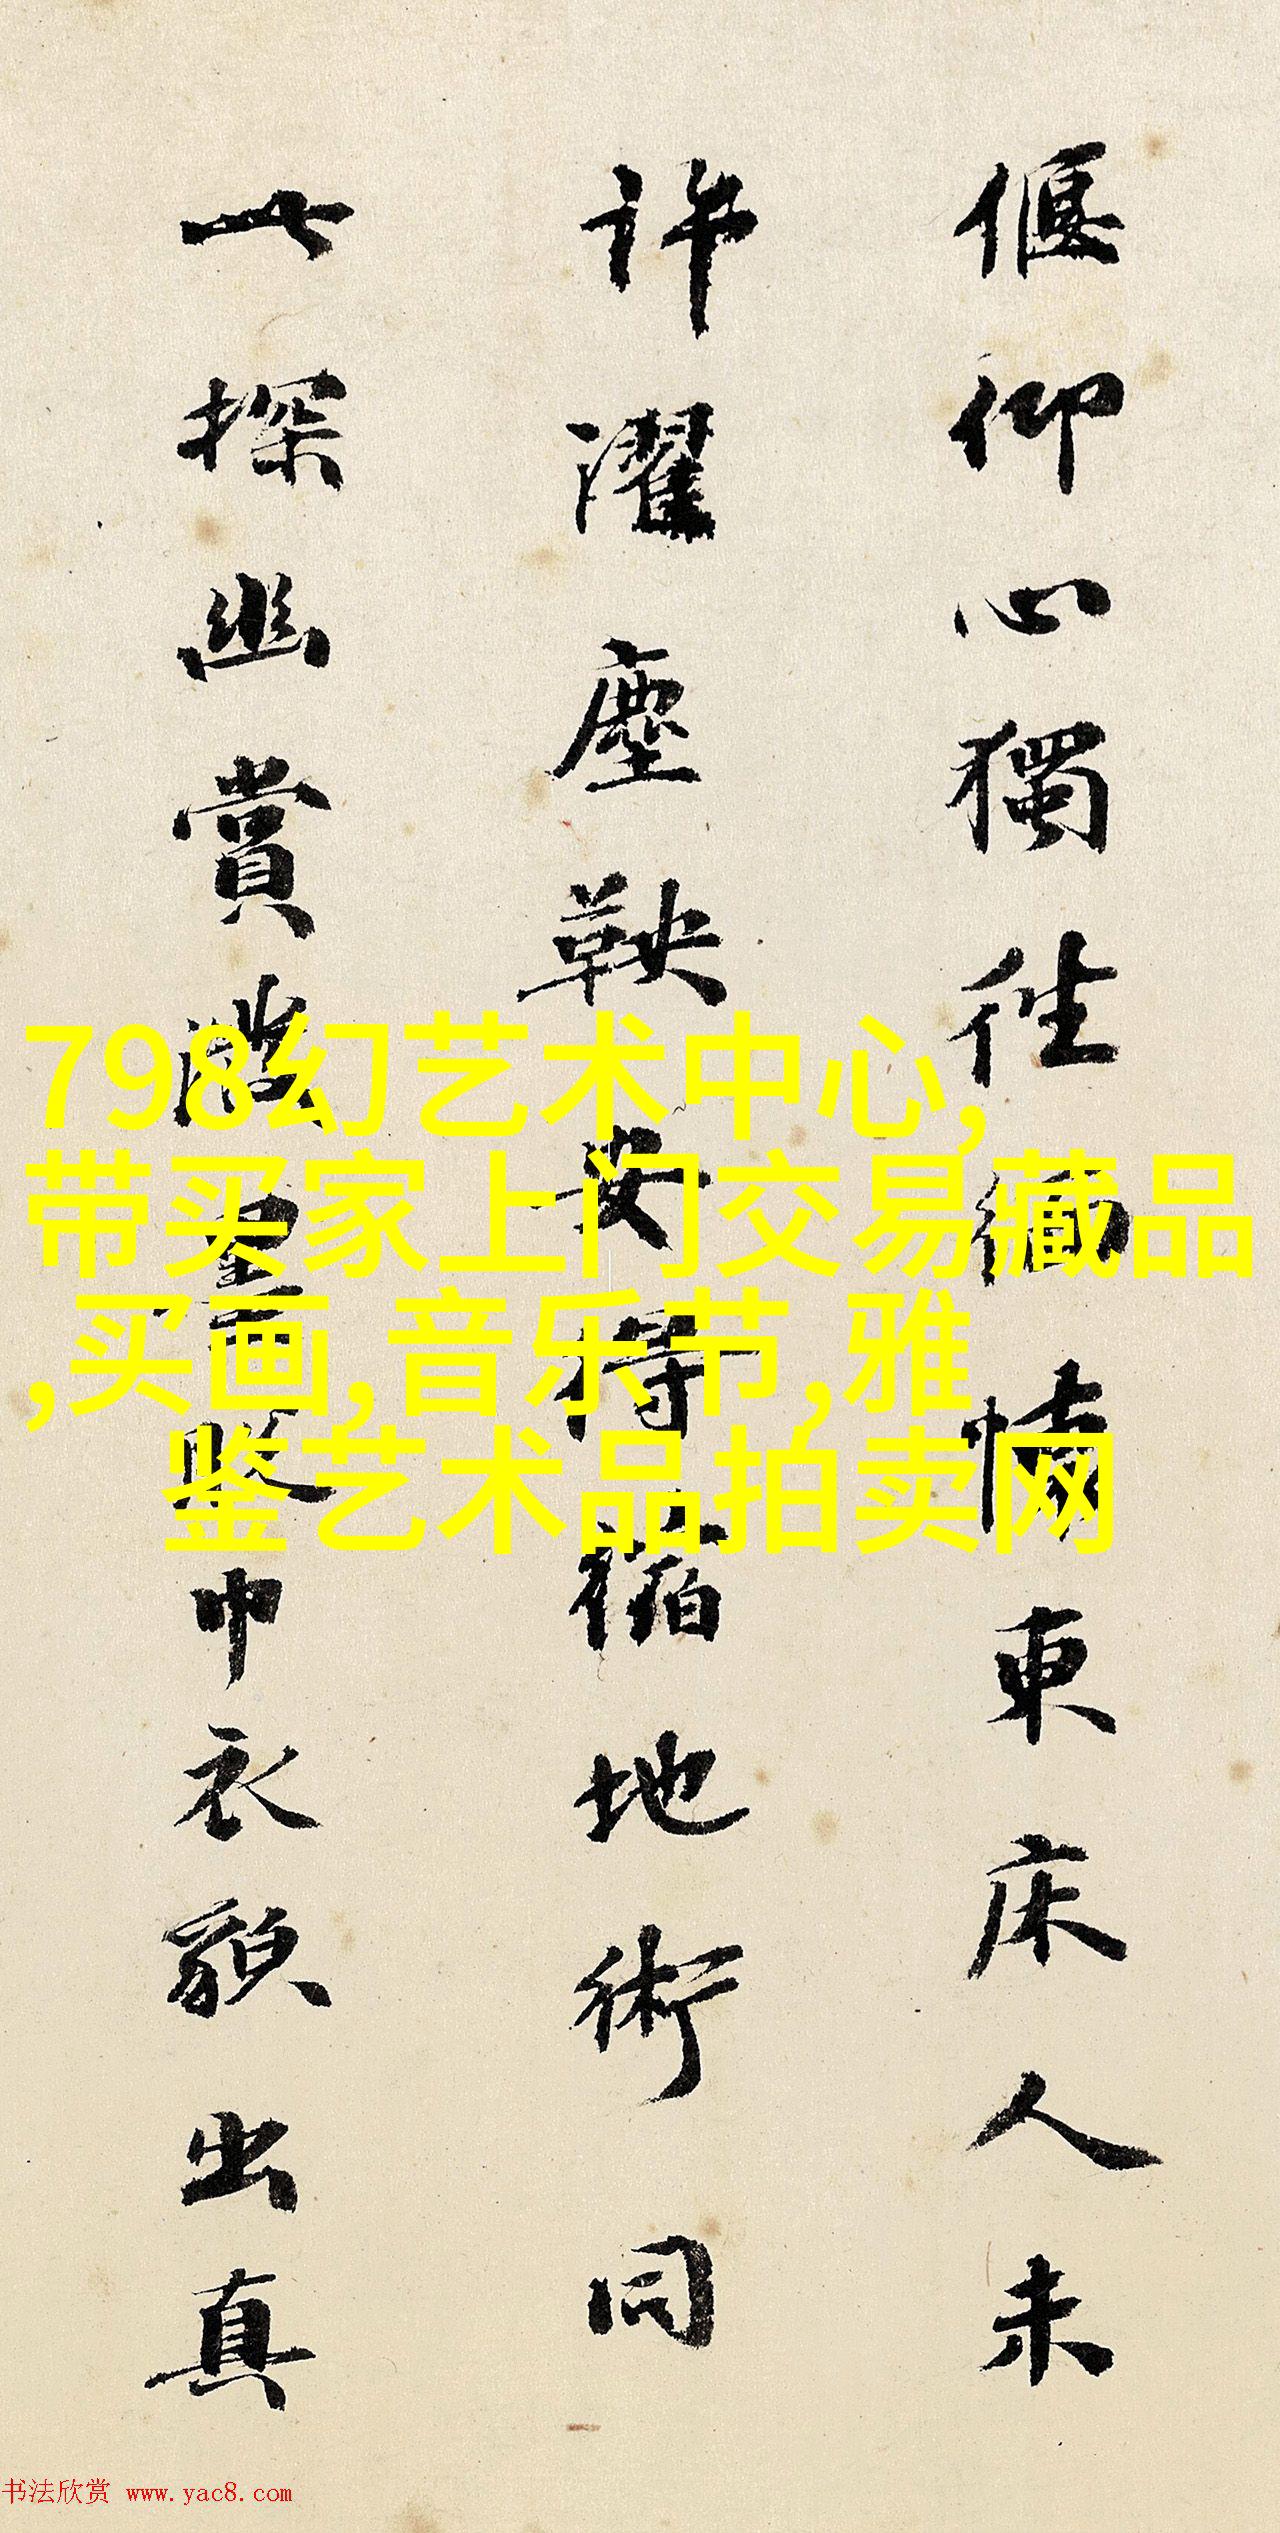 偃仰心獨往緬懷東床人未
許濯塵鞅安得縮地術同
此探幽賞瑩鑒巾衣貌出真
798幻艺术中心,
带买家上门交易藏品
,买画,音乐节,雅
鉴艺术品拍卖网
书法欣赏 www.yac8.com